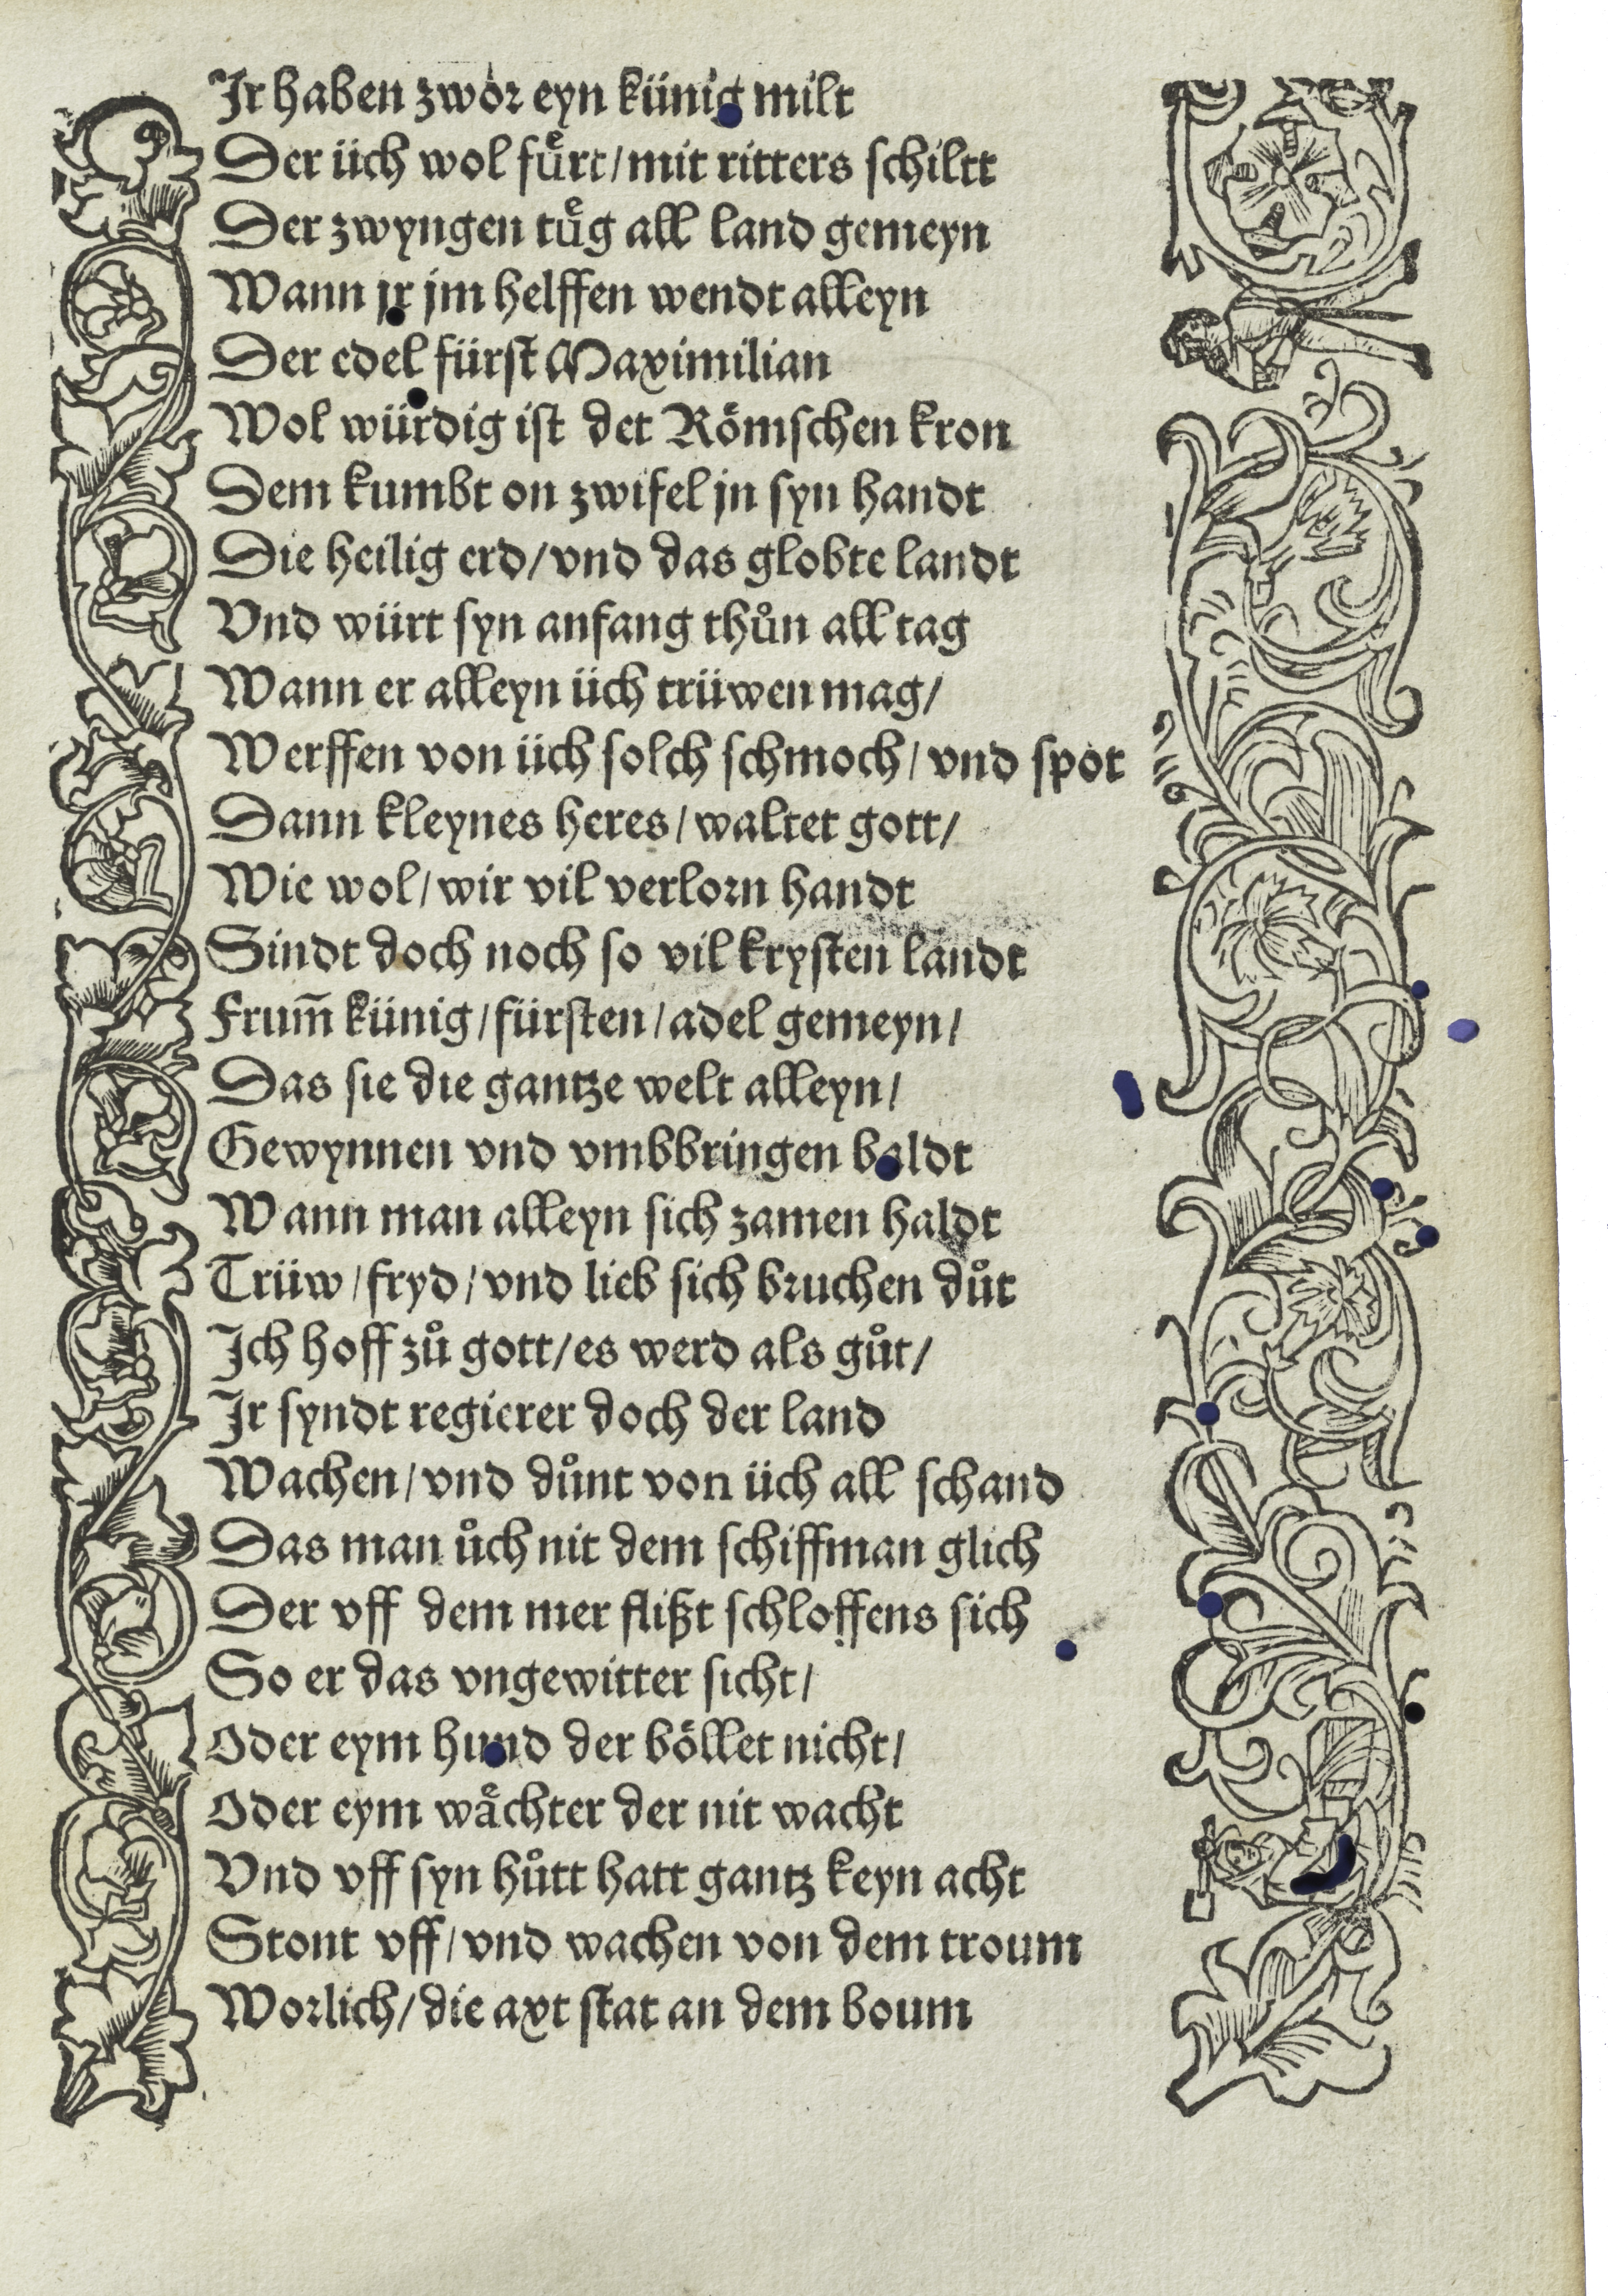 Ir haben zwor eyn künig milt
Der üch wol fuͤrt/mit ritters schiltt
Der zwyngen tuͤg all land gemeyn
Wann jr jm helffen wendt alleyn
Der edel fürst Maximilian
Wol würdig ist der Roͤmschen kron
Dem kumbt on zwifel jn syn handt
Die heilig erd/vnd das globte landt
Vnd würt syn anfang thuͦn all tag
Wann er alleyn üch trüwen mag/
Werffen von üch solch schmoch/vnd spot
Dann kleynes heres/waltet gott/
Wie wol/wir vil verlorn handt
Sindt doch noch so vil krysten landt
Frum̄ künig/fürsten/adel gemeyn/
Das sie die gantze welt alleyn/
Gewynnen vnd vmbbringen baldt
Wann man alleyn sich zamen haldt
Trüw/fryd/vnd lieb sich bruchen duͦt
Ich hoff zuͦ gott/es werd als guͦt/
Ir syndt regierer doch der land
Wachen/vnd duͦnt von üch all schand
Das man uͦch nit dem schiffman glich
Der vff dem mer flißt schloffens sich
So er das vngewitter sicht/
Oder eym hund der boͤllet nicht/
Oder eym waͤchter der nit wacht
Vnd vff syn huͦtt hatt gantz keyn acht
Stont vff/vnd wachen von dem troum
Worlich/die axt stat an dem boum